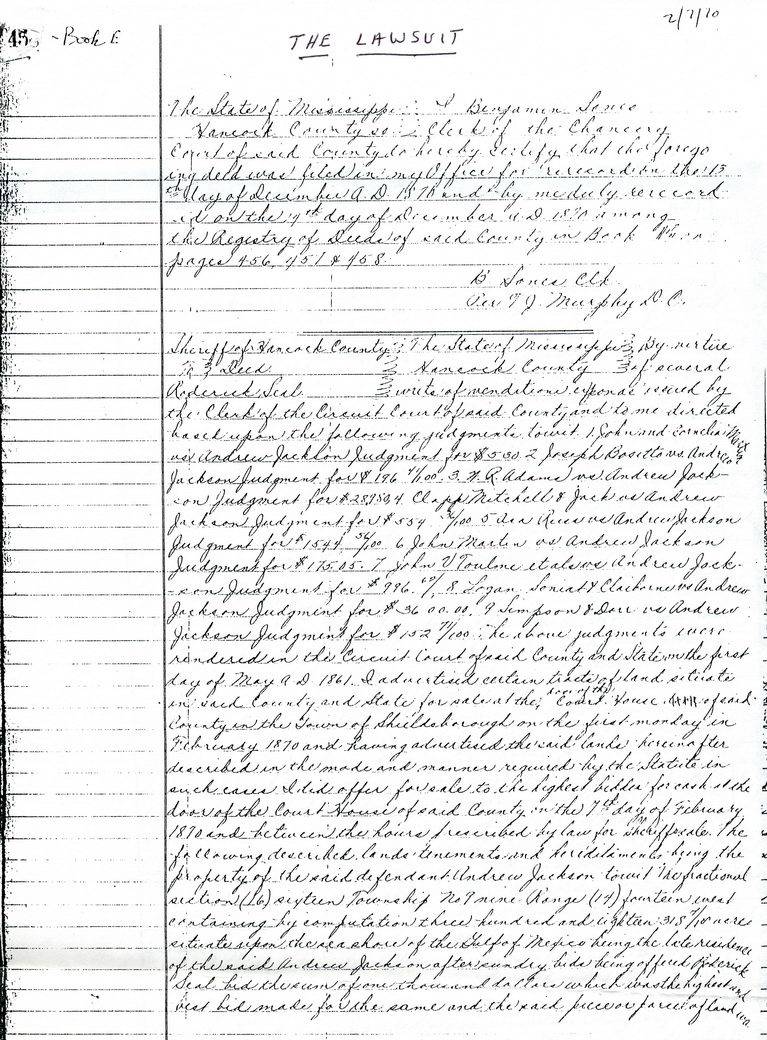 2/7/70
45 - Book E
THE LAWSUIT
The State of Mississippi : I Benjamin Sones
Hancock County ss : Clerk of the Chancery
Court of said County do hereby certify that the forego
ing deed was filed in my Office for rerecord on the 13
day of December A.D. 1870 and by me duly rerecord
ed on the 9th day of December A D 1870 among
the Registry of Deeds of said County in Book on
pages 456, 457 & 458
B Sones Clk.
Per T J. Murphy D.C.
Sheriff of Hancock County : The State of Mississippi By virtue
To Deed Hancock County of several
Roderick Seal writs of venditioni exponas issued by
the Clerk of the Circuit Court of said County and to me directed
based upon the following judgments towit 1. John and Cornelia
vs Andrew Jackson Judgment for $530. 2 Joseph vs Andrew
Jackson Judgment for $196 /100. 3. Adams vs Andrew Jack-
son Judgment for 4 Clapp Mitchell & Jack vs Andrew
Jackson Judgment for $554 /100 5 Asa vs Andrew Jackson
Judgment for $1544 /100 6 John Martin vs Andrew Jackson
Judgment for $175.05. 7 John V Toulme et als vs Andrew Jack-
-son Judgment for $996. 8 Logan, Soniat & Claiborne vs Andrew
Jackson Judgment for $3600.00. 9 Simpson & Dorr vs Andrew
Jackson Judgment for $152 /100. The above judgments were
rendered in the Circuit Court of said County and State on the first
day of May A D. 1861. I advertised certain tracts of land situate
in said County and State for sale at the door of the Court House of said
County in the Town of Shieldsborough on the first monday in
February 1870 and having advertised the said lands hereinafter
described in the mode and manner required by the Statute in
such cases I did offer for sale to the highest bidder for cash at the
door of the Court House of said County, on the 7th day of February
1870 and between the hours prescribed by law for Sheriffs sale. The
following described lands tenements and hereditaments being the
property of the said defendant Andrew Jackson towit The fractional
section (16) sixteen Township No 9 nine Range (14) fourteen west
containing by computation three hundred and eighteen 318 /100 acres
situate upon the sea shore of the Gulf of Mexico being the late residence
of the said Andrew Jackson after sundry bids being offered Roderick
Seal bid the sum of one thousand dollars which was the highest and
best bid made for the same and the said piece or parcel of land was